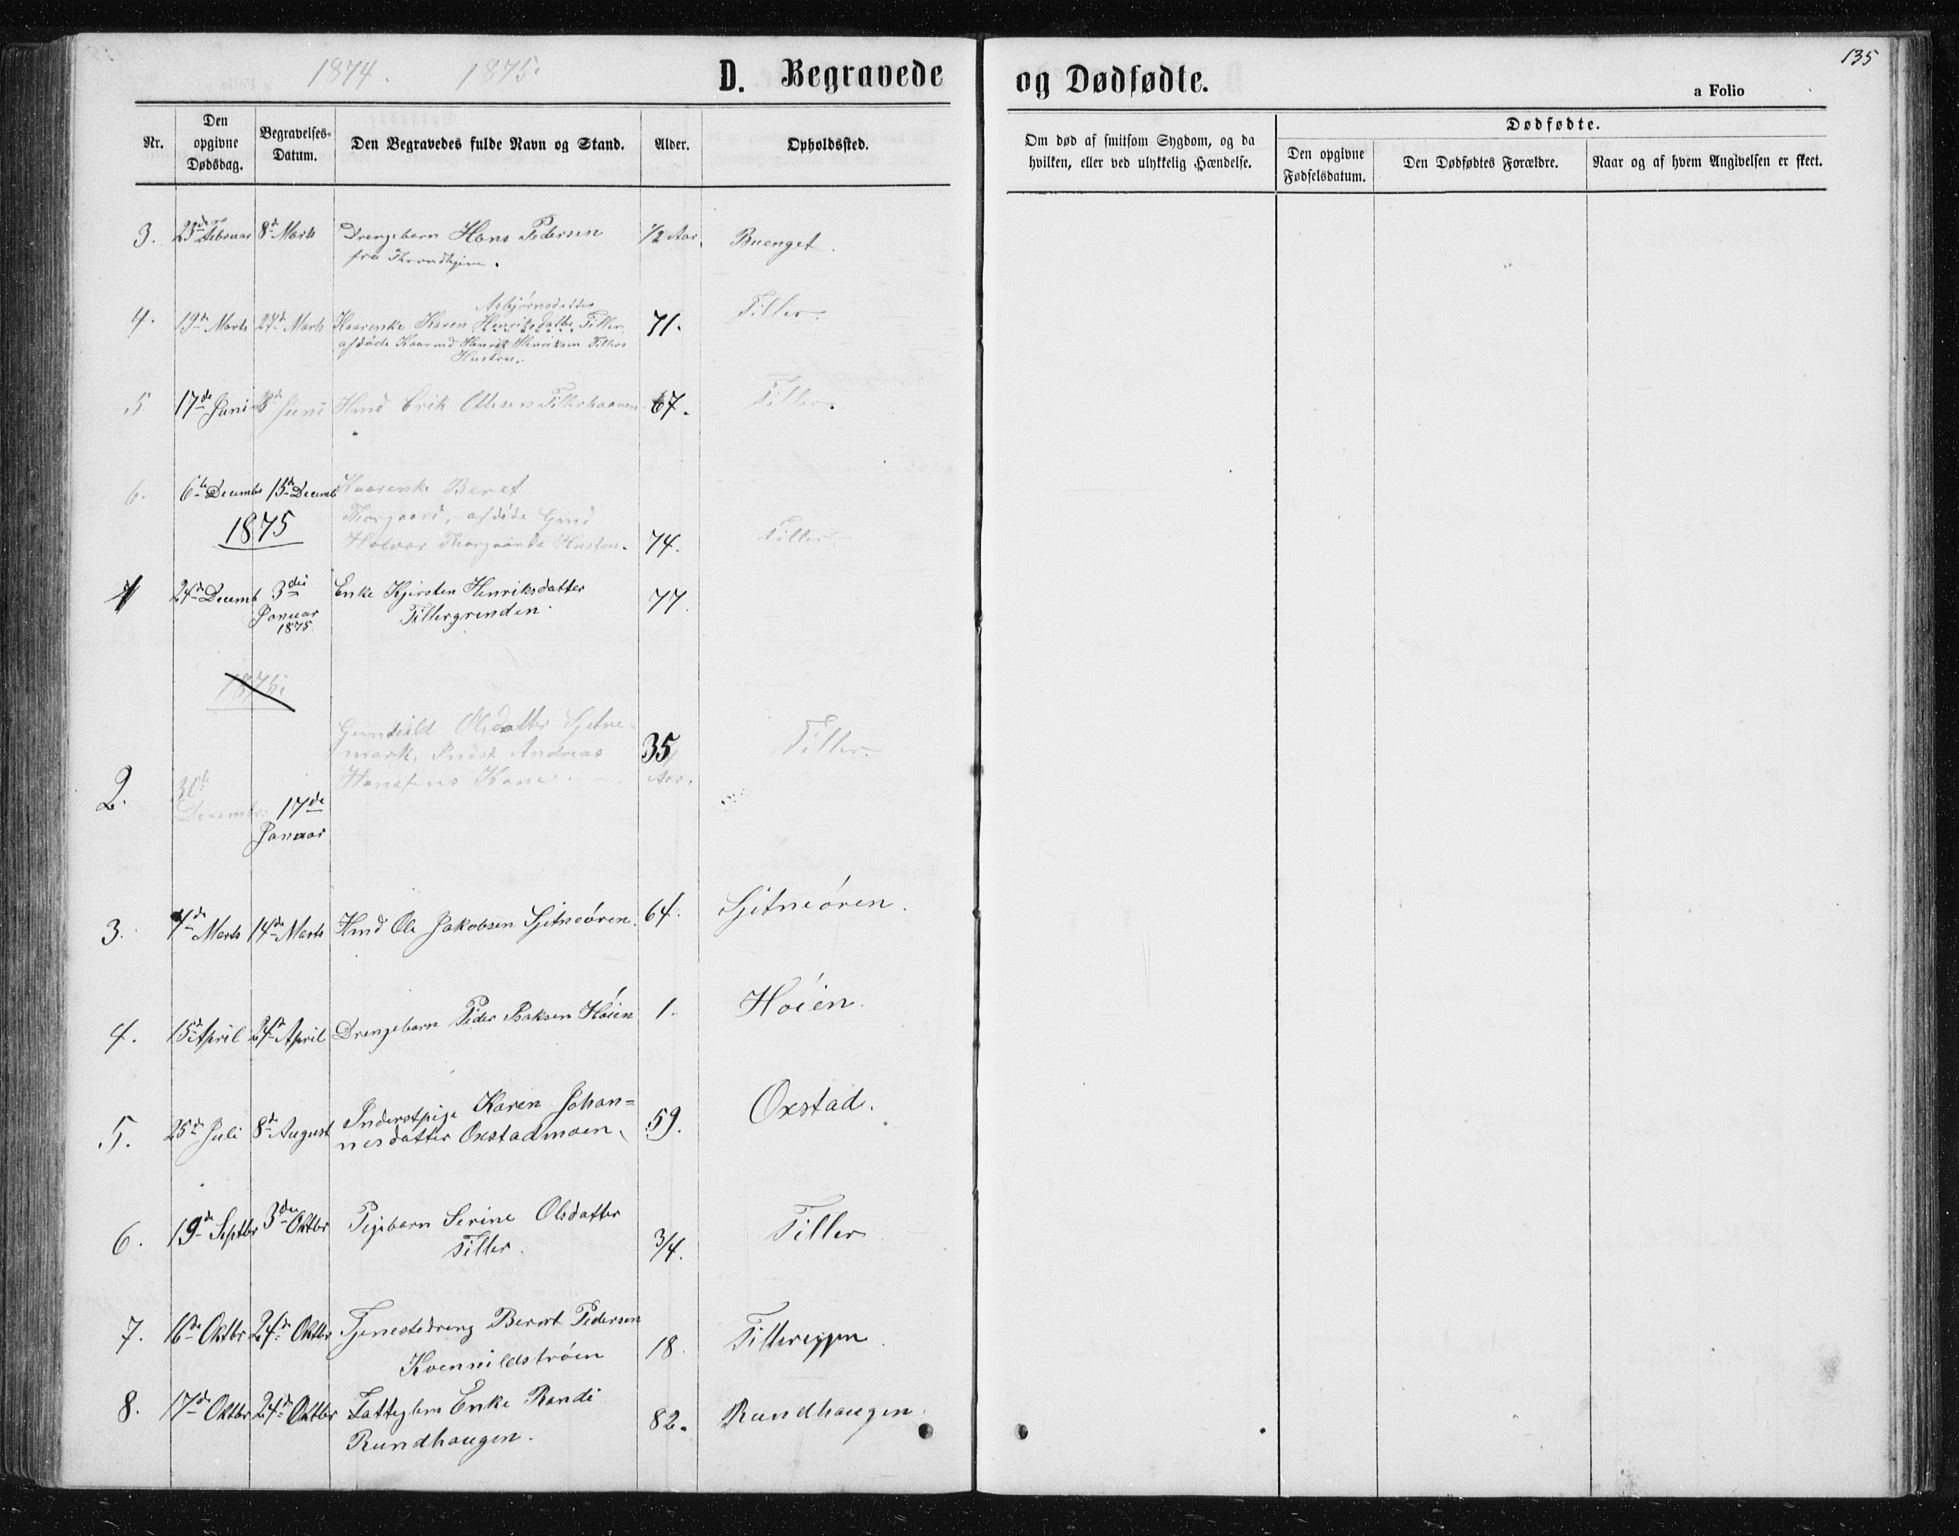 135
1874. 1875.
D. Begravede og Dødfødte.
a Folio
Nr.
Den opgivne Dødsdag.
Begravelses-Datum.
Den Begravedes fulde Navn og Stand.
Alder.
Opholdssted.
Om død af smitsom Sygdom, og da hvilken, eller ved ulykkelig Hændelse.
Dødfødte.
Den opgivne Fødselsdatum.
Den Dødfødtes Forældre.
Naar og af hvem Angivelsen er skeet.
3. 23de Februar 8de Marts Drengebarn Hans Pedersen 1/2 Aar. Buenget.
fra Throndhjem.
Asbjørnsdatter
4. 19de Marts 27de Marts Kaarenke Karen Henriksdatter Tiller 71. Tiller.
afdøde Kaarmd Henrik Henriksen Tillers
Hustru.
5 17de Juni Juni Hmd Erik Ottesen Tillerhaaven 67. Tiller.
6. 6te Decembr 15de Decemb Kaarenke Beret
Thorgaard, afdøde Gmd
1875 Halvor Thorgaards Hustru. 74. Tiller.
1 24de Decemb 3die Januar 1875. Enke Kjersten Henriksdatter 77.
Tillergrenden.
1875.
Gunhild Olsdatter Sjetne-
mark, Inds. Andreas 35 Tiller.
Hansens Kone. Aar.
2. 30te Decembr. 17de Januar
3. 7de Marts 14de Marts Hmd Ole Jakobsen Sjetneören. 64. Sjetneören.
4. 15de April 24de April Drengebarn Peder Isaksen Höien 1. Höien.
5. 25de Juli 8de August Inderstpige Karen Johan=
nesdatter Oxstadmoen. 59. Oxstad.
6. 19de Septbr 3die Oktbr Pigebarn Serine Olsdatter
Tiller. 3/4. Tiller
7. 16de Oktbr 24de Oktbr Tjenestedreng Berent Pedersen
Kvenildströen 18. Tillereggen.
8. 17de Oktbr 24de Oktbr Fattiglem Enke Randi 82. Rundhaugen.
Rundhaugen.